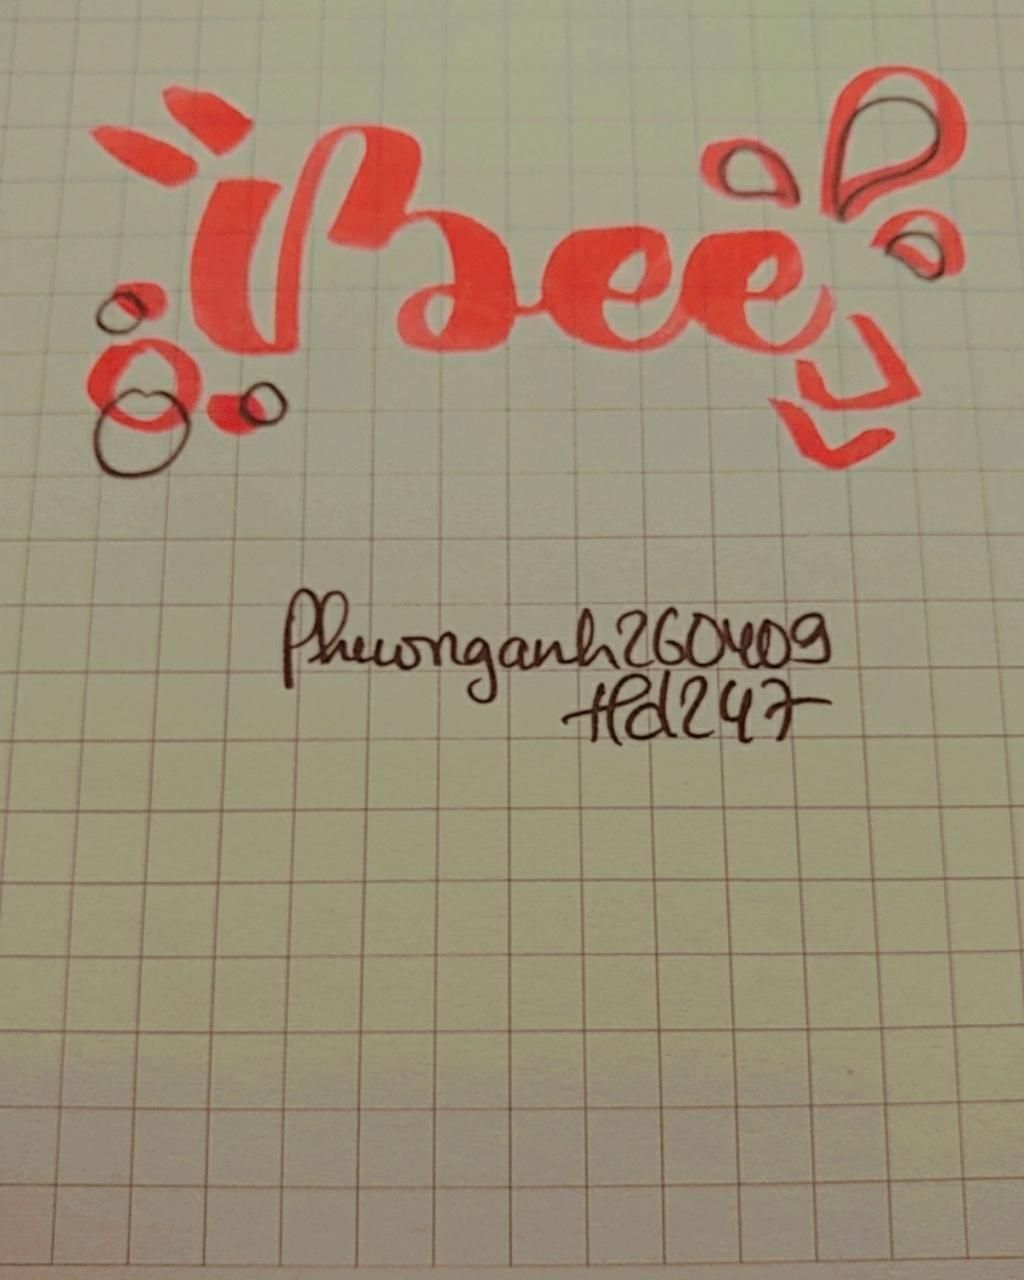 Bee
Phuonganh260409
Hd247